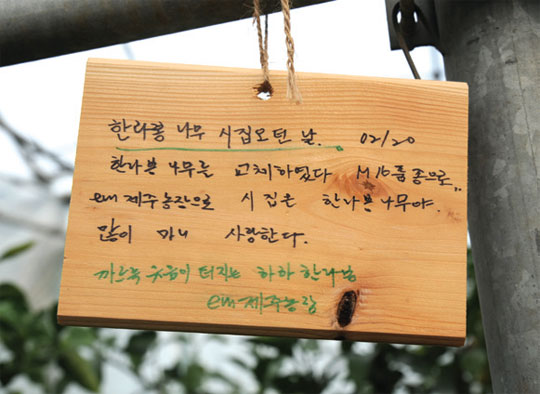 한라봉 나무 시집오던 날. 02/20
한나쁜 나무를 교체하였다 M16품종으로..
em제주농장으로 시집은 한나쁜나무야.
많이 마니 사랑한다.
까르륵 웃음이 터지는 하하 한라봉
em제주농장